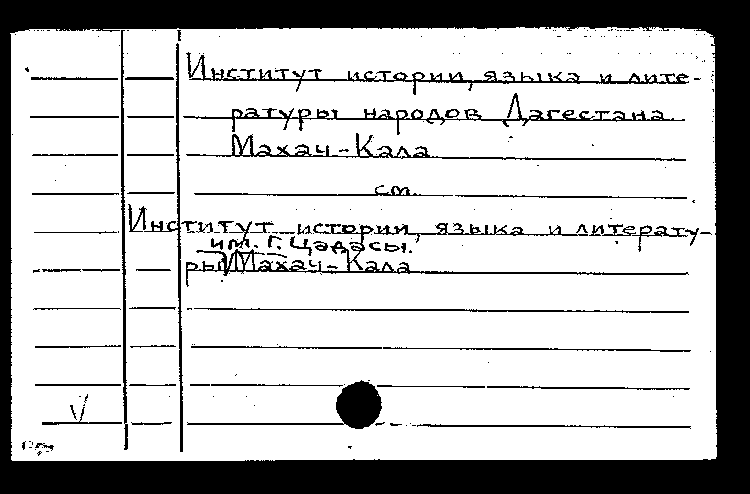 Институт истории, языка и лите-
ратуры народов Дагестана.
Махач-Кала
см.
Институт истории, языка и литерату-
им. Г. Цадасы.
ры Махач-Кала